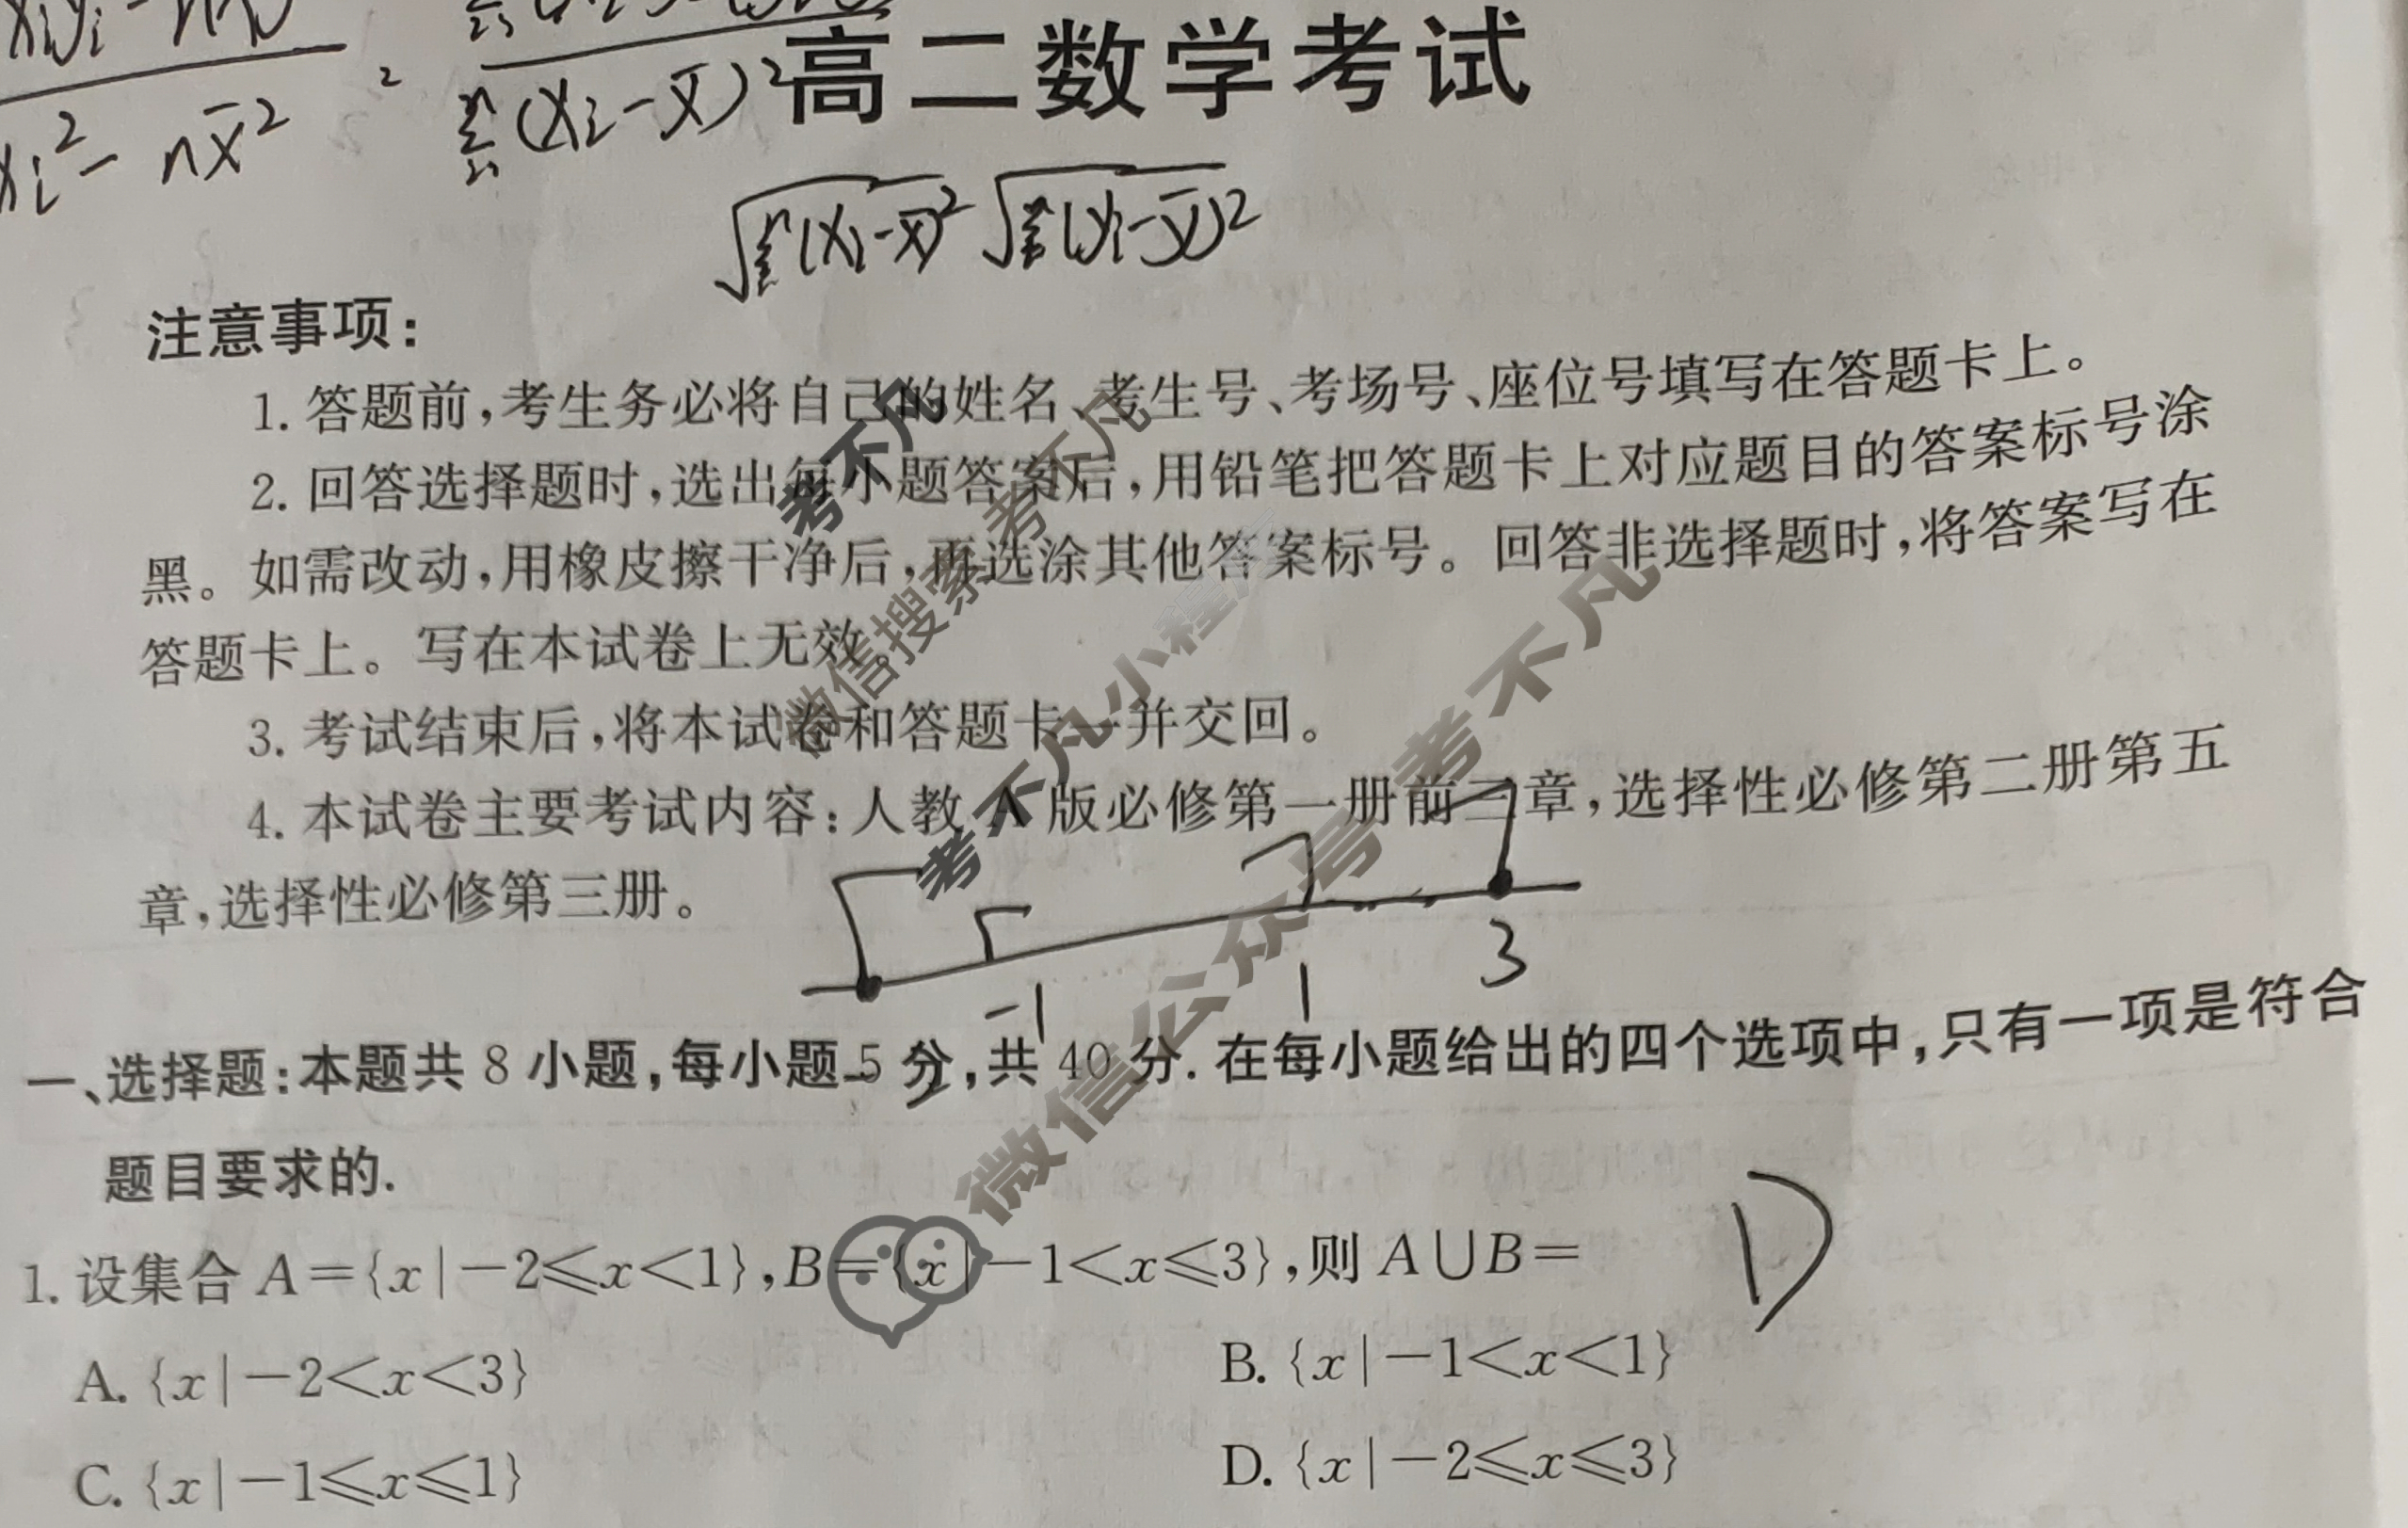 高二数学考试
xi² - nx̄²
(xi-x̄)²
√(xi-x̄)² √(yi-ȳ)²
注意事项:
1. 答题前,考生务必将自己的姓名、考生号、考场号、座位号填写在答题卡上。
2. 回答选择题时,选出每小题答案后,用铅笔把答题卡上对应题目的答案标号涂
黑。如需改动,用橡皮擦干净后,再选涂其他答案标号。回答非选择题时,将答案写在
答题卡上。写在本试卷上无效。
3. 考试结束后,将本试卷和答题卡一并交回。
4. 本试卷主要考试内容:人教 A 版必修第一册前三章,选择性必修第二册第五
章,选择性必修第三册。
-2 -1 1 3
一、选择题:本题共 8 小题,每小题 5 分,共 40 分. 在每小题给出的四个选项中,只有一项是符合
题目要求的.
1. 设集合 A={x|-2≤x<1},B={x|-1<x≤3},则 A∪B= D
A. {x|-2<x<3}
B. {x|-1<x<1}
C. {x|-1≤x≤1}
D. {x|-2≤x≤3}
考不凡
微信搜索 考不凡
考不凡小程序
微信公众号 考不凡